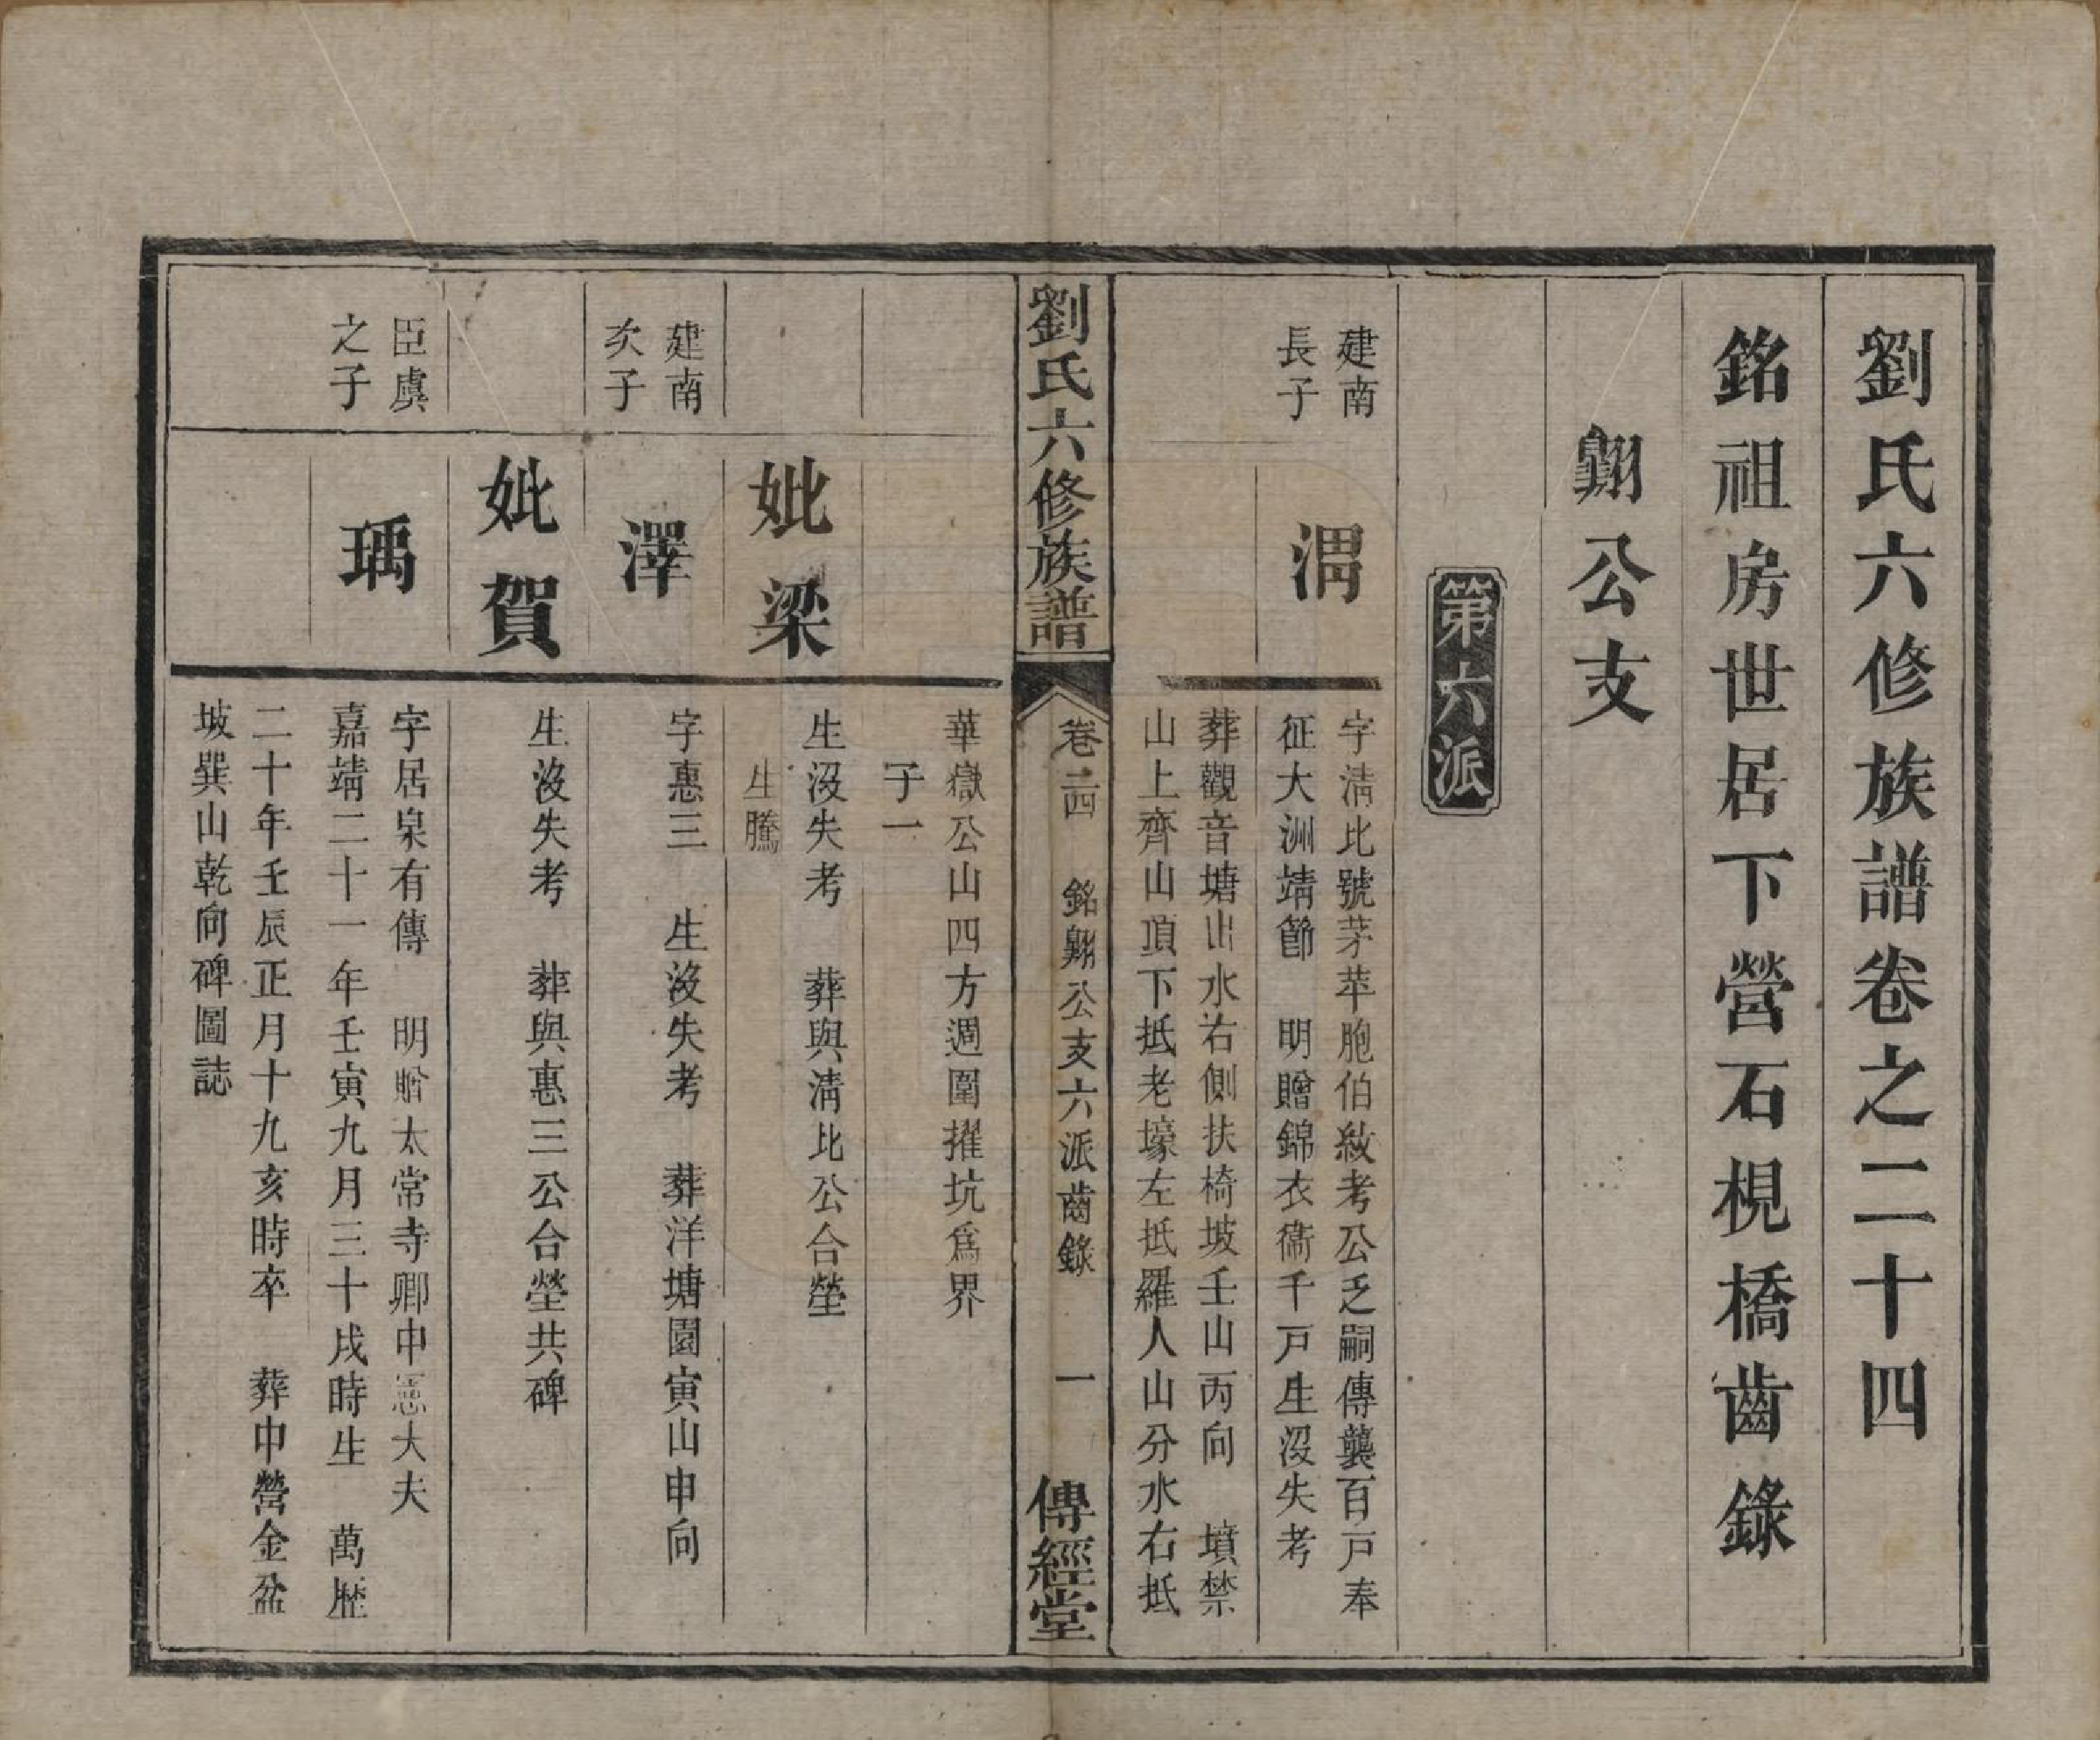 劉氏六修族譜卷之二十四
銘祖房世居下營石梘橋齒錄
翱公支
第六派
建南
長子
渭
字淸比號茅苹胞伯紋考公乏嗣傳襲百戸奉
征大洲靖節　明贈錦衣衞千戸生沒失考
葬觀音塘出水右側扶椅坡壬山丙向　墳禁
山上齊山頂下抵老壕左抵羅人山分水右抵
劉氏六修族譜
卷二四　銘翱公支六派齒錄　一
傳經堂
華嶽公山四方週圍擢坑爲界
子一
妣梁
生沒失考　葬與淸比公合塋
生騰
建南
次子
澤
字惠三　生沒失考　葬洋塘園寅山申向
妣賀
生沒失考　葬與惠三公合塋共碑
臣虞
之子
瑀
字居泉有傳　明贈太常寺卿中憲大夫
嘉靖二十一年壬寅九月三十戌時生　萬歷
二十年壬辰正月十九亥時卒　葬中營金盆
坡巽山乾向碑圖誌